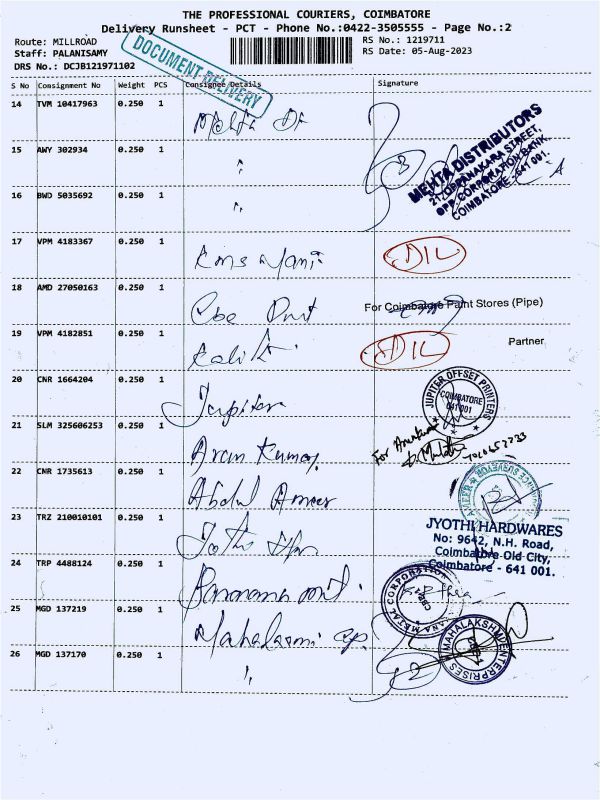 THE PROFESSIONAL COURIERS, COIMBATORE
Delivery Runsheet - PCT - Phone No.:0422-3505555 - Page No.:2
Route: MILLROAD
RS No.: 1219711
Staff: PALANISAMY
RS Date: 05-Aug-2023
DRS No.: DCJB121971102
DOCUMENT DELIVERY
S No Consignment No Weight PCS Consignee Details Signature
14 TVM 10417963 0.250 1 Mehta Dr
MEHTA DISTRIBUTORS
21, OPPANAKARA STREET,
OPP. CORPORATION BANK,
COIMBATORE - 641 001.
15 AWY 302934 0.250 1 "
16 BWD 5035692 0.250 1 "
17 VPM 4183367 0.250 1 DIL
18 AMD 27050163 0.250 1 Cbe
For Coimbatore Paint Stores (Pipe)
19 VPM 4182851 0.250 1 DIL
Partner
20 CNR 1664204 0.250 1 Jupiter
JUPITER OFFSET PRINTERS
COIMBATORE
641 001
21 SLM 325606253 0.250 1 Arun Kumar
For
22 CNR 1735613 0.250 1 Abdul Ameer
23 TRZ 210010101 0.250 1 Jothi
JYOTHI HARDWARES
No: 9642, N.H. Road,
Coimbatore Old City,
Coimbatore - 641 001.
24 TRP 4488124 0.250 1
METAL CORPORATION
25 MGD 137219 0.250 1 Mahalaxmi
MAHALAKSHMI ENTERPRISES
26 MGD 137170 0.250 1 "